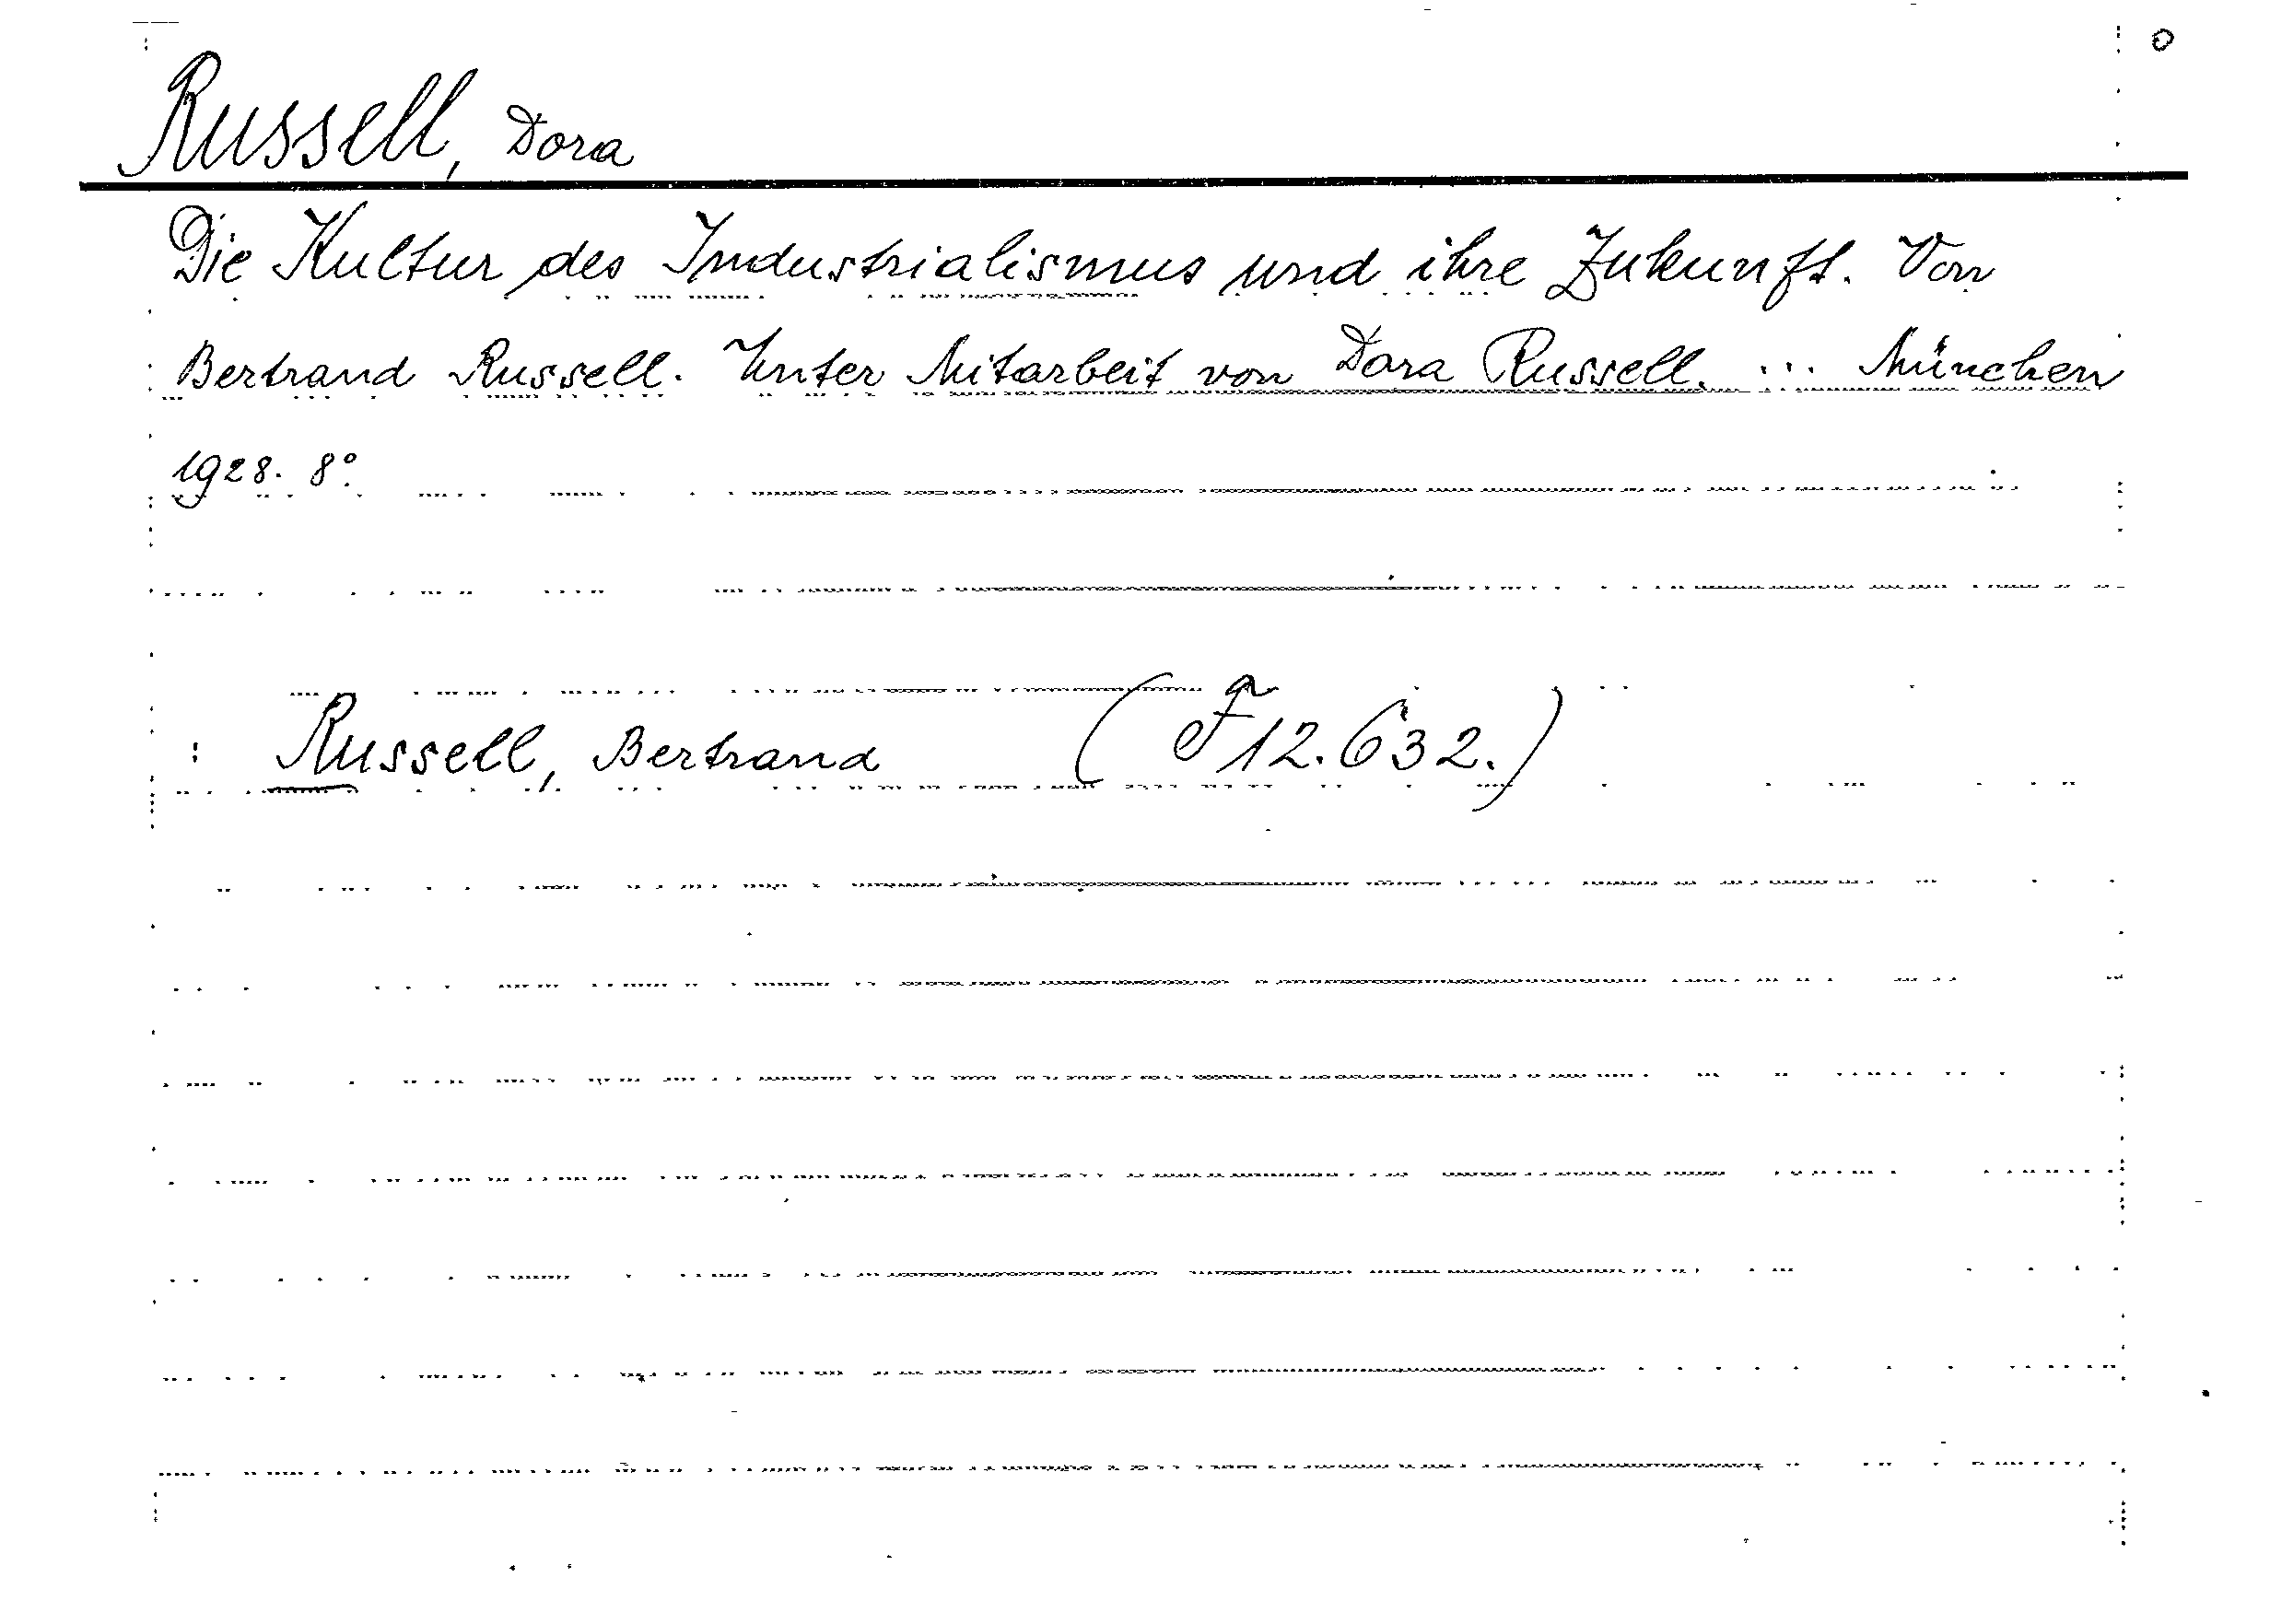 Russell, Dora
Die Kultur des Industrialismus und ihre Zukunft. Von
Bertrand Russell. Unter Mitarbeit von Dora Russell. ... München
1928. 8°.
: Russell, Bertrand (F 12.632.)